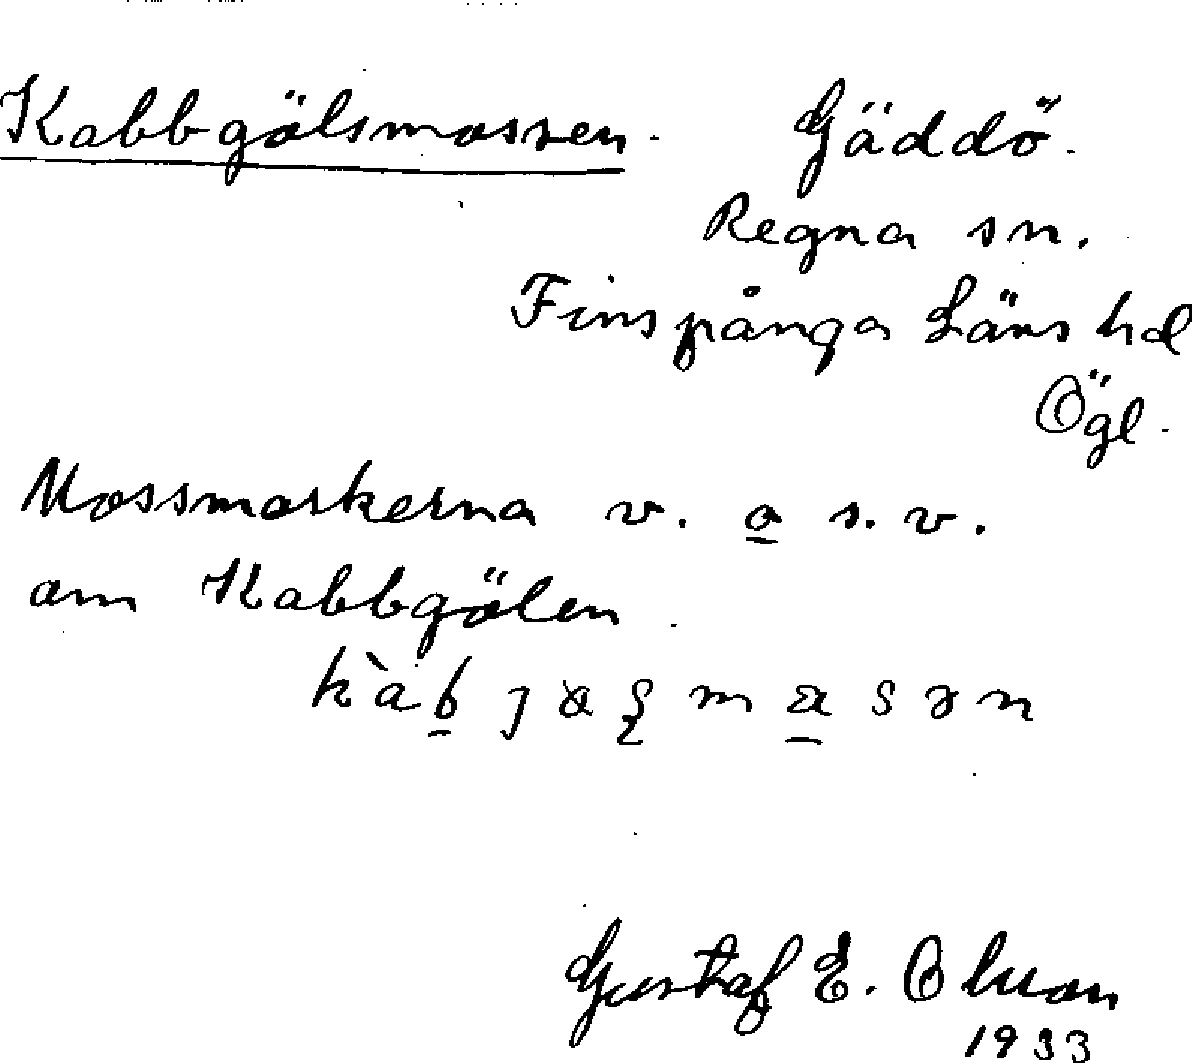 Kabbgölsmossen. Gäddö.
Regna sn.
Finspånga Läns hd
Ögl.
Mossmarkerna v. o s. v.
om Kabbgölen.
Gustaf E. Olsson
1933